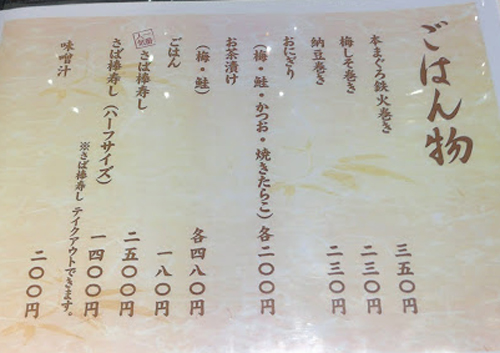 ごはん物
本まぐろ鉄火巻き 三五〇円
梅しそ巻き 二三〇円
納豆巻き 二三〇円
おにぎり
（梅・鮭・かつお・焼きたらこ）各二〇〇円
お茶漬け
（梅・鮭） 各四八〇円
ごはん 一八〇円
一番人気
さば棒寿し 二五〇〇円
さば棒寿し（ハーフサイズ） 一四〇〇円
※さば棒寿し テイクアウトできます。
味噌汁 二〇〇円